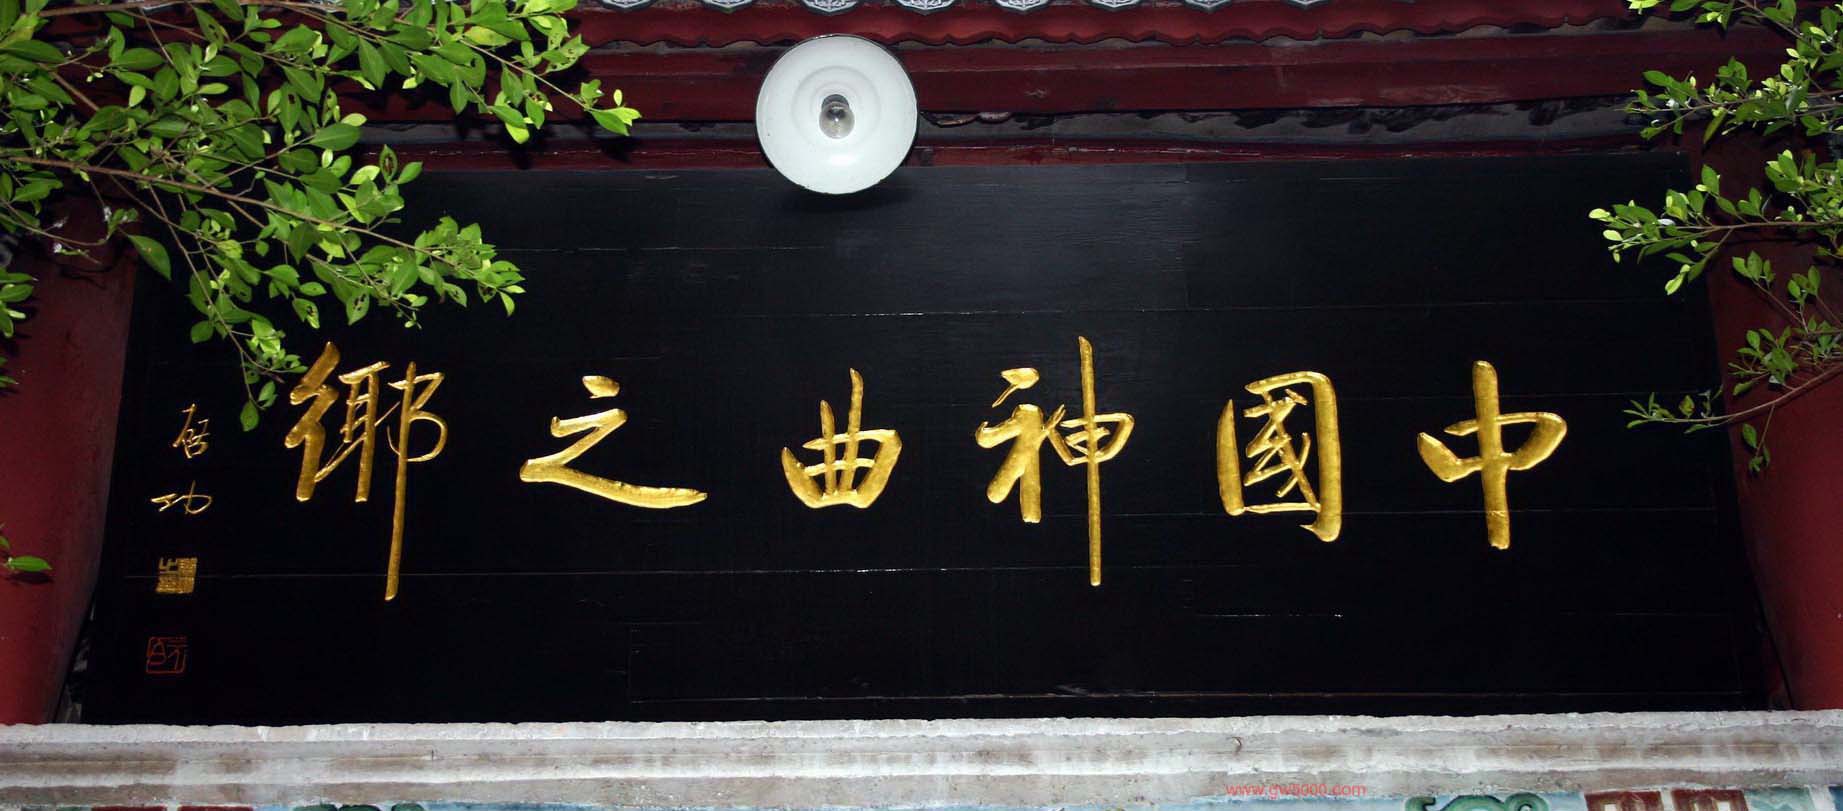 中國神曲之鄉
启功
www.gw5000.com